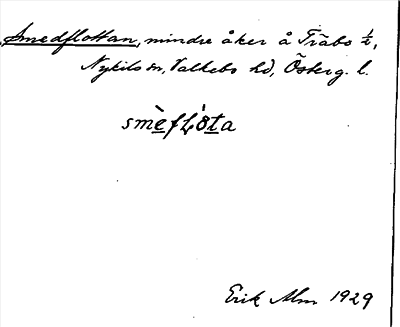 Smedflottan, mindre åker å Träbo ½,
Nykils sn, Valkebo hd, Österg. l.
smèflòta
Erik Alm 1929